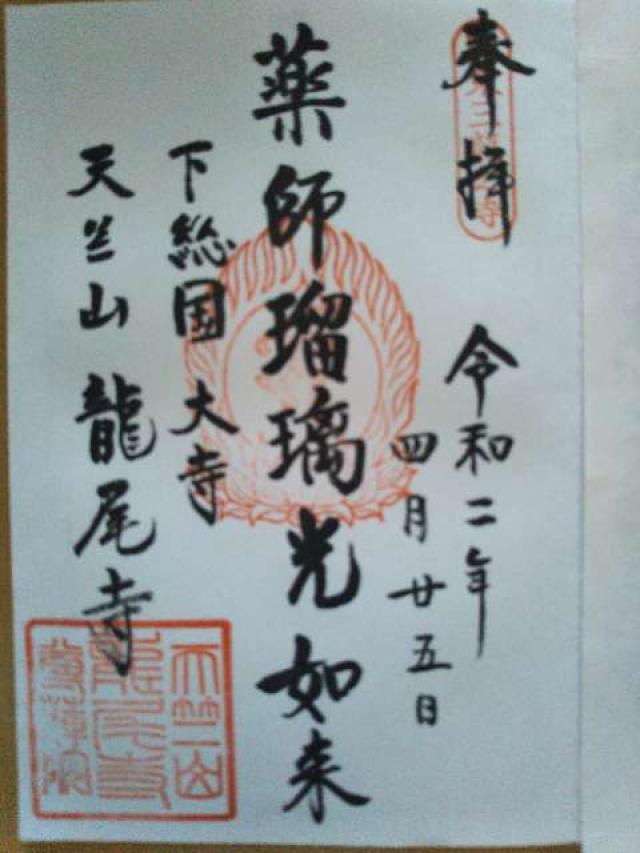 奉拝
令和二年
四月廿五日
薬師瑠璃光如来
下総国 大寺
天竺山 龍尾寺
天竺山
龍尾寺